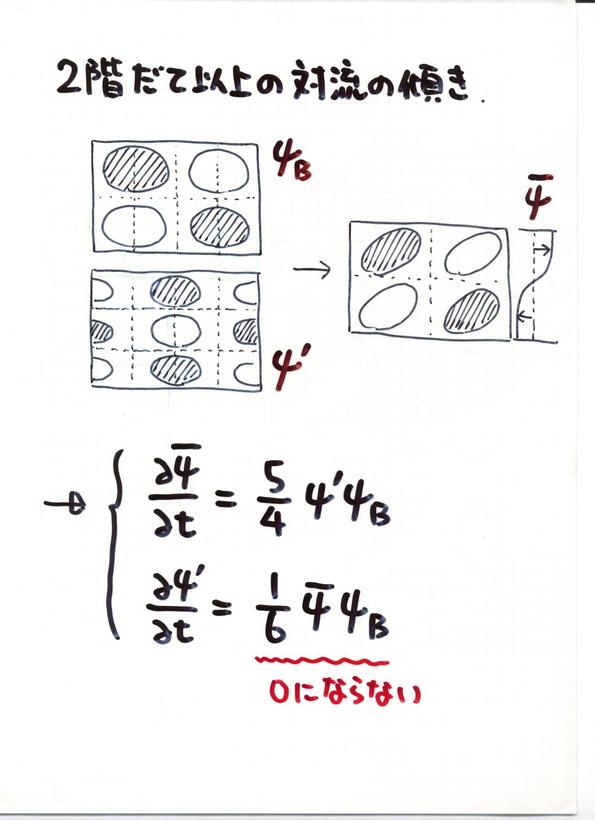 2階だて以上の対流の傾き.
ψB
ψ̄
ψ'
∂ψ̄/∂t = 5/4 ψ'ψB
∂ψ'/∂t = 1/6 ψ̄ψB
0にならない